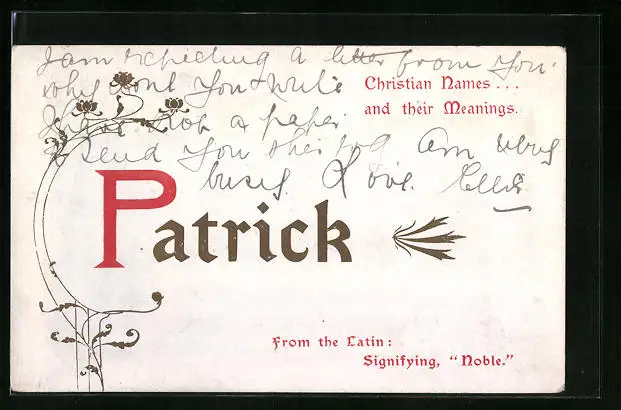 I am expecting a letter from you.
why dont you write
I have not a paper
to send you this fog am very
busy. Love. Ellie
Christian Names...
and their Meanings.
Patrick
From the Latin:
Signifying, "Noble."